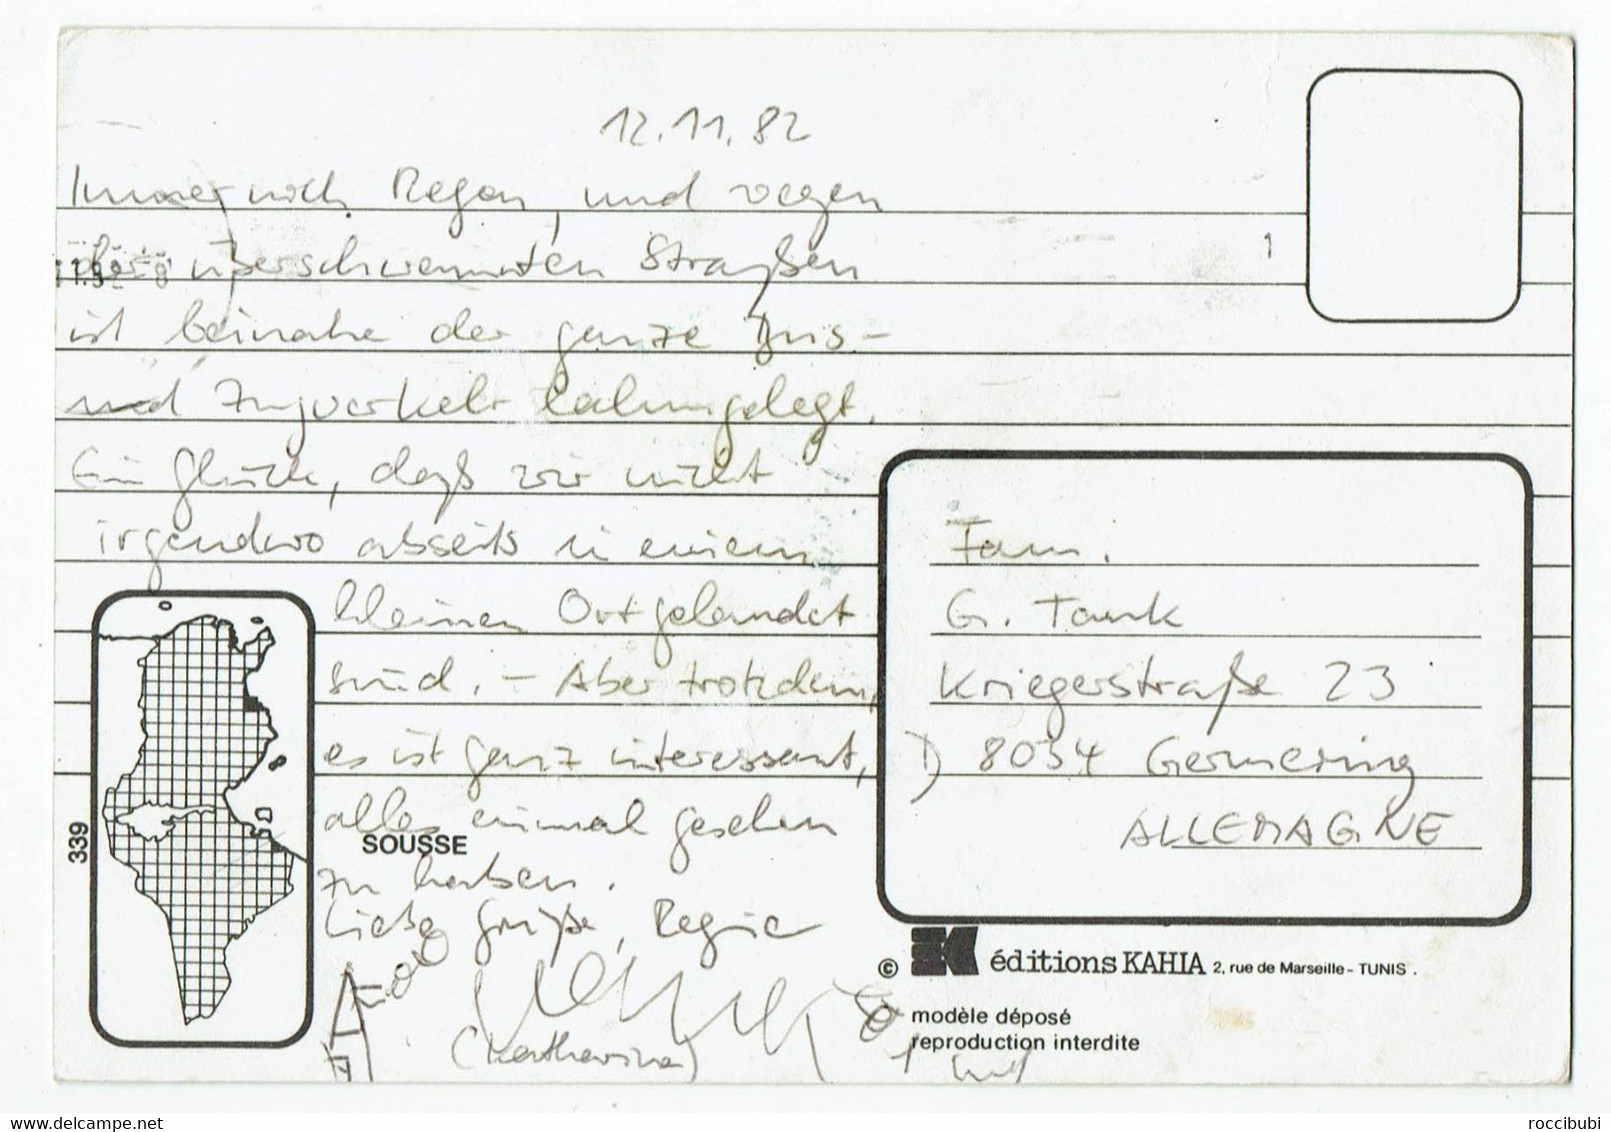 12.11.82
Immer noch Regen, und wegen
der überschwemmten Straßen
ist beinahe der ganze Bus-
und Zugverkehr lahmgelegt.
Ein Glück, daß wir nicht
irgendwo abseits in einem
kleinen Ort gelandet
sind. – Aber trotzdem,
es ist ganz interessant,
alles einmal gesehen
zu haben.
Liebe Grüße,
(Katharina)
1
Fam.
G. Tank
Kriegerstraße 23
D 8034 Germering
ALLEMAGNE
339
SOUSSE
© K éditions KAHIA 2, rue de Marseille - TUNIS.
modèle déposé
reproduction interdite
www.delcampe.net
roccibubi